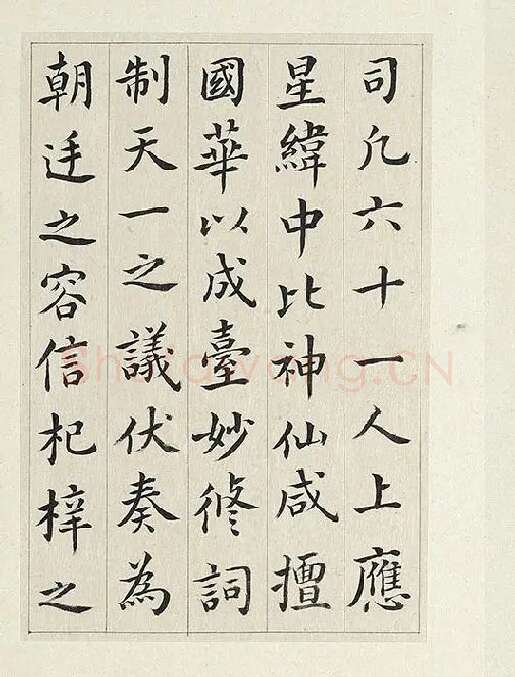 司凡六十一人上應
星緯中比神仙咸擅
國華以成臺妙修詞
制天一之議伏奏為
朝廷之容信杞梓之